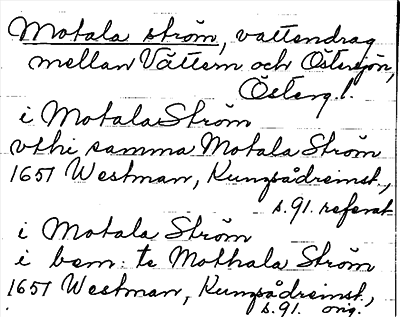 Motala ström, vattendrag
mellan Vättern och Östersjön,
Österg.l.
i Motala Ström
vthi samma Motala Ström
1651 Westman, Kungsådreinst.,
s.91. referat
i Motala Ström
i bem: te Mothala Ström
1651 Westman, Kungsådreinst.,
s.91. orig.